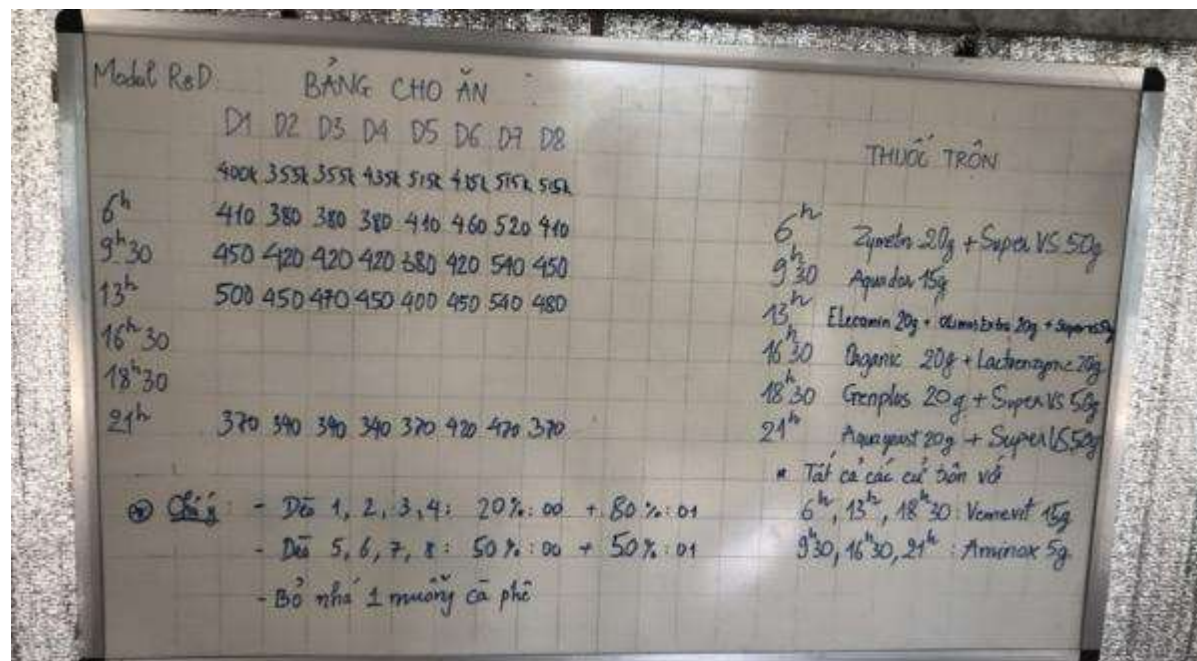 Model R&D
BẢNG CHO ĂN
D1 D2 D3 D4 D5 D6 D7 D8
400k 355k 355k 435k 515k 515k 515k
6h 410 380 380 380 410 460 520 410
9h30 450 420 420 420 380 420 540 450
13h 500 450 470 450 400 450 540 480
16h30
18h30
21h 370 340 340 340 370 420 470 370
* Chú ý: - Dèo 1, 2, 3, 4: 20%: 00 + 80%: 01
- Dèo 5, 6, 7, 8: 50%: 00 + 50%: 01
- Bỏ nhá 1 muỗng cà phê
THUỐC TRỘN
6h Zymetin 20g + Super VS 50g
9h30 15g
13h Elecamin 20g + 20g + Super VS
16h30 Organic 20g + Lactoenzyme 20g
18h30 Genplus 20g + Super VS 50g
21h Aquayeast 20g + Super VS 50g
* Tất cả các cử trộn với
6h, 13h, 18h30: Vemevit 15g
9h30, 16h30, 21h: Aminox 5g